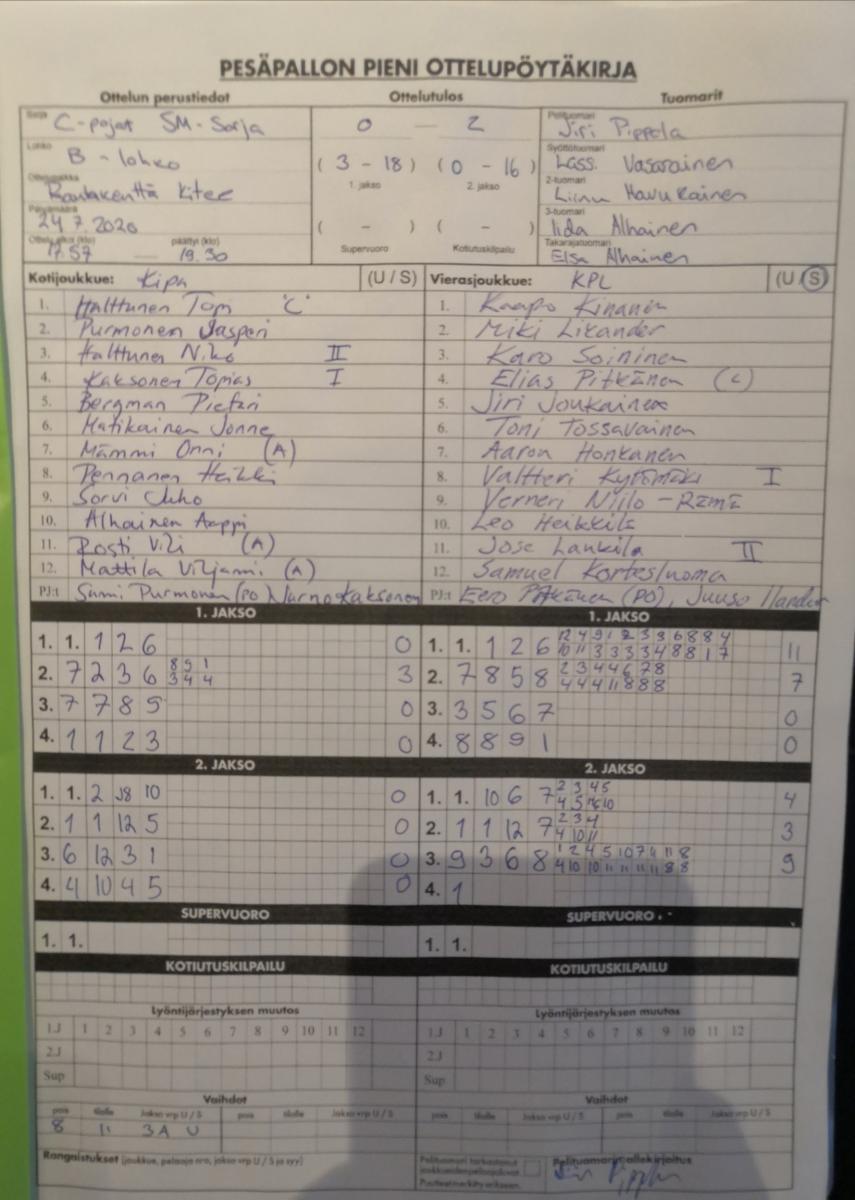 PESÄPALLON PIENI OTTELUPÖYTÄKIRJA
Ottelun perustiedot Ottelutulos Tuomarit
Sarja C-pojat SM-Sarja 0 — 2 Pelituomari Jiri Pippola
Lohko B-lohko (3 - 18) (0 - 16) Syöttötuomari Lassi Vasarainen
Ottelupaikka Rantakenttä Kitee 1. jakso 2. jakso 2-tuomari Havukainen
Päivämäärä 24.7.2020 ( - ) ( - ) 3-tuomari Iida Alhainen
Ottelu alkoi (klo) 17.57 — päättyi (klo) 19.30 Supervuoro Kotiutuskilpailu Takarajatuomari Elsa Alhainen
Kotijoukkue: Kipa (U / S) Vierasjoukkue: KPL (U / S)
1. Halttunen Topi 'C' 1. Kaapo Kinanen
2. Purmonen Jasperi 2. Miki Likander
3. Halttunen Niko II 3. Karo Soininen
4. Kaksonen Topias I 4. Elias Pitkänen (C)
5. Bergman Pietari 5. Jiri Joukainen
6. Matikainen Jonne 6. Toni Tossavainen
7. Mämmi Onni (A) 7. Aaron Honkanen
8. Pennanen Heikki 8. Valtteri Kytömäki I
9. Sorvi Juho 9. Verneri Niilo-Rämä
10. Alhainen Aappi 10. Leo Heikkilä
11. Rosti Vili (A) 11. Jose Lankila II
12. Mattila Viljami (A) 12. Samuel Kortesluoma
PJ:t Sami Purmonen (PO) Kaksonen PJ:t Eero Pitkänen (PO), Juuso
1. JAKSO 1. JAKSO
1. 1. 1 2 6 0 1. 1. 1 2 6 12 4 9 1 2 3 3 6 8 8 4 11
10 11 3 3 3 3 4 8 8 1 7
2. 7 2 3 6 8 9 1 3 2. 7 8 5 8 2 3 4 4 6 7 8 7
3 4 4 4 4 4 11 8 8 8
3. 7 7 8 9 0 3. 3 5 6 7 0
4. 1 1 2 3 0 4. 8 8 9 1 0
2. JAKSO 2. JAKSO
1. 1. 2 J8 10 0 1. 1. 10 6 7 2 3 4 5 4
4 5 10
2. 1 1 12 5 0 2. 1 1 12 7 2 3 4 3
4 10 11
3. 6 12 3 1 0 3. 9 3 6 8 1 2 4 5 10 7 4 11 8 9
4 10 10 11 11 11 11 8 8
4. 4 10 4 5 0 4. 1
SUPERVUORO SUPERVUORO
1. 1. 1. 1.
KOTIUTUSKILPAILU KOTIUTUSKILPAILU
Lyöntijärjestyksen muutos Lyöntijärjestyksen muutos
1.J 1 2 3 4 5 6 7 8 9 10 11 12 1.J 1 2 3 4 5 6 7 8 9 10 11 12
2.J 2.J
Sup Sup
Vaihdot Vaihdot
pois tilalle Jakso vrp U / S pois tilalle Jakso vrp U / S pois tilalle Jakso vrp U / S pois tilalle Jakso vrp U / S
8 11 3A U
Rangaistukset (joukkue, pelaaja nro, jakso vrp U / S ja syy) Pelituomari tarkastanut Pelituomarin allekirjoitus
joukkueiden pelaajaluvat
Puutteet merkitty erikseen.